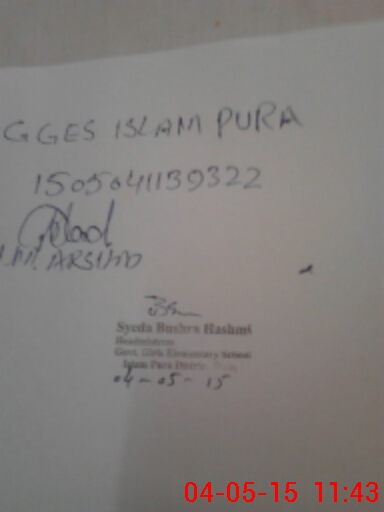 GGES ISLAM PURA
1505041139322
M. ARSHAD
Syeda Bushra Hashmi
Headmistress
Govt. Girls Elementary School
Islam Pura
04-05-15
04-05-15 11:43